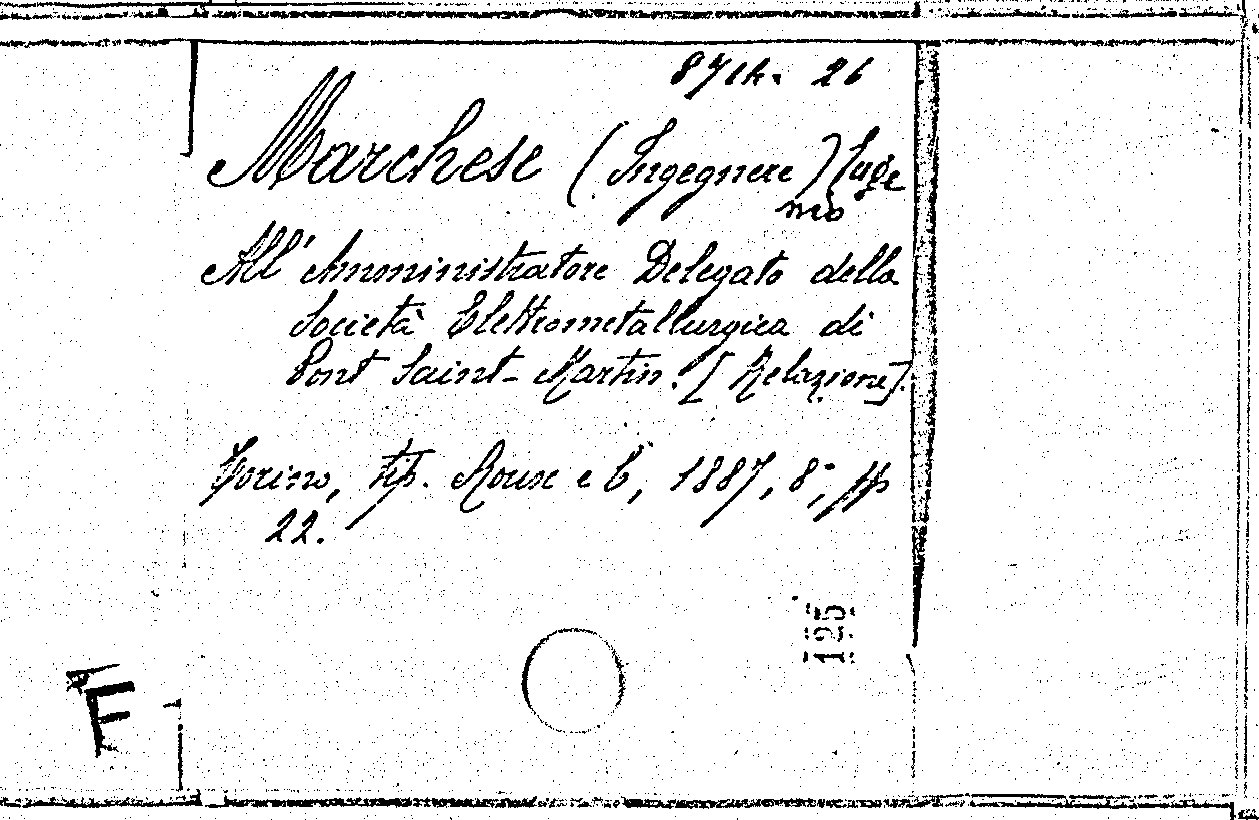 871h. 26
Marchese (Ingegnere) Euge
nio
All' Amministratore Delegato della
Società Elettrometallurgica di
Pont Saint-Martin. [Relazione].
Torino, tip. Roux e C, 1887, 8°, pp
22.
125
F